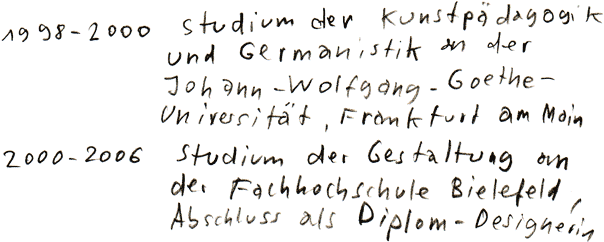 1998-2000 Studium der Kunstpädagogik
und Germanistik an der
Johann-Wolfgang-Goethe-
Universität, Frankfurt am Main
2000-2006 Studium der Gestaltung an
der Fachhochschule Bielefeld,
Abschluss als Diplom-Designerin